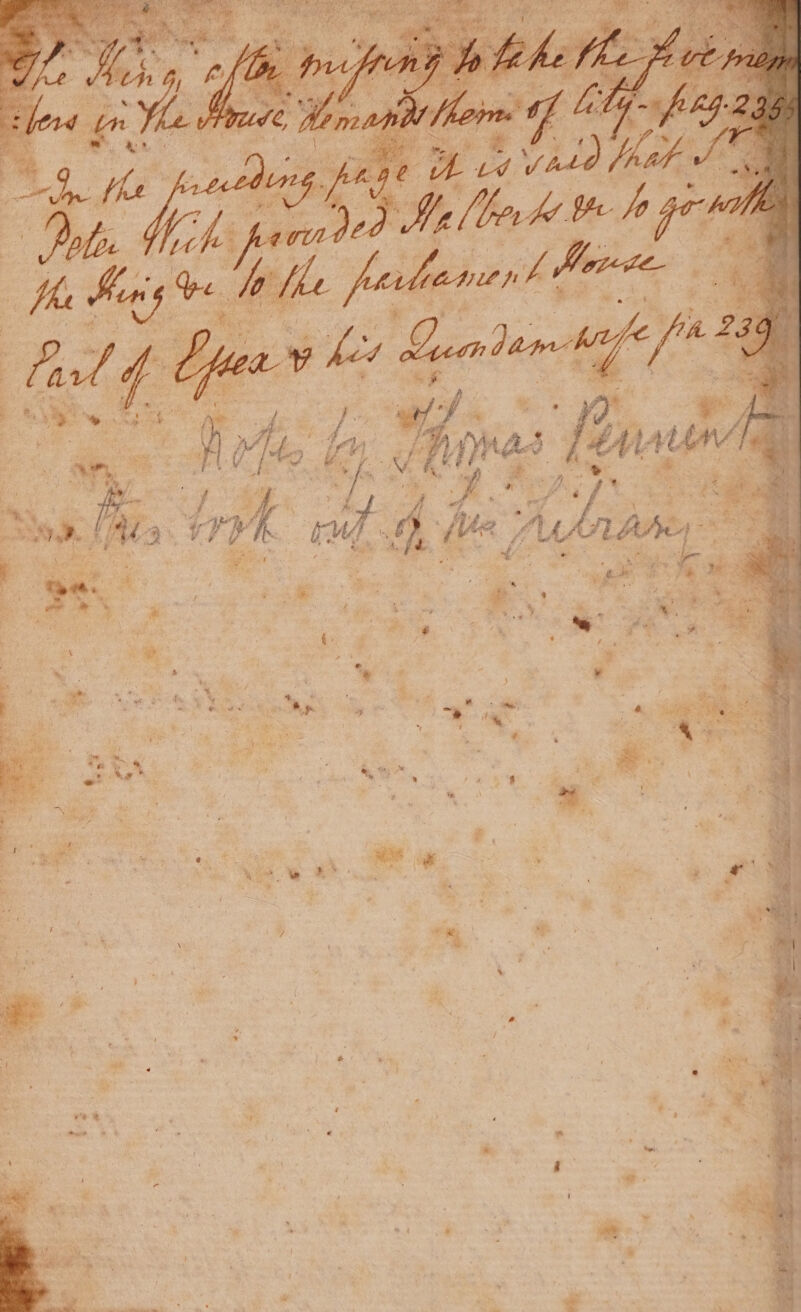 The King, after missing to take the five mem
:bers in the House, demands them of City - pag. 235
- In the preceding page it is said that Sr
Peter Wich provided Halberts &c to go with
the King &c to the parliament House
Earl of Essex & his Quondam wife pa 239
Notes by Thomas Pennent
this book out of his Library